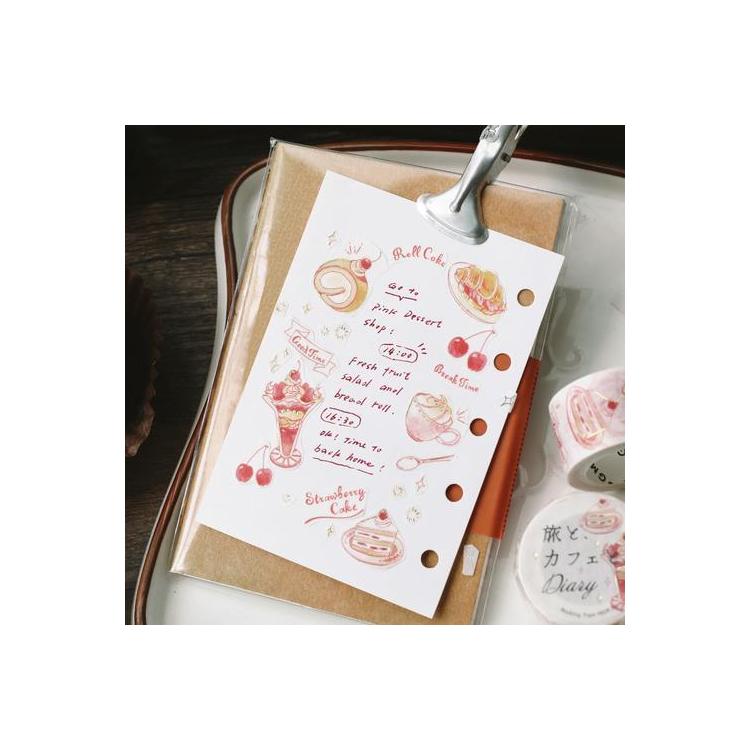 Roll Cake
Go to
Pink Dessert
Shop!
14:00
Good Time
Fresh fruit
salad and
bread roll.
Break Time
16:30
ok! Time to
back home!
Strawberry
Cake
旅と、
カフェと
Diary
BGM